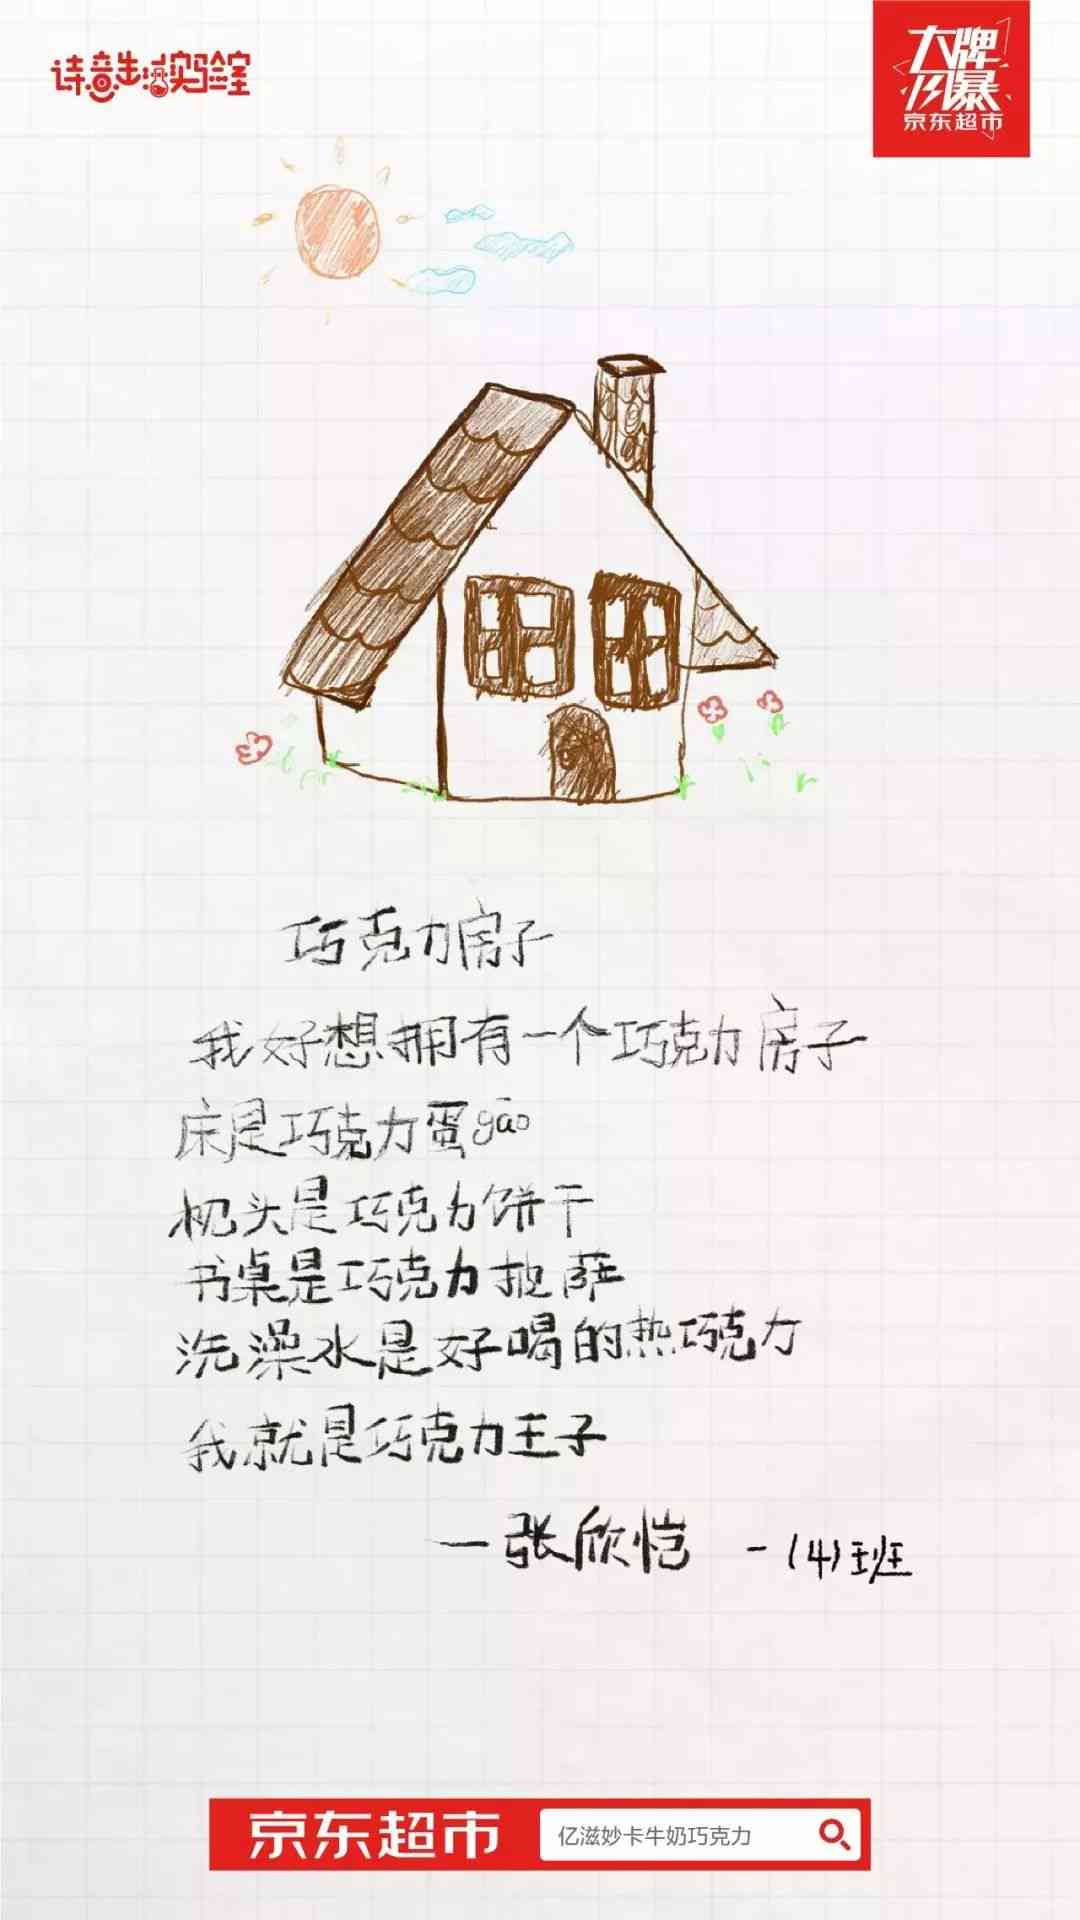 诗意生活实验室
大牌
风暴
京东超市
巧克力房子
我好想拥有一个巧克力房子
床是巧克力蛋gāo
枕头是巧克力饼干
书桌是巧克力披萨
洗澡水是好喝的热巧克力
我就是巧克力王子
一张欣恺 一(4)班
京东超市 亿滋妙卡牛奶巧克力